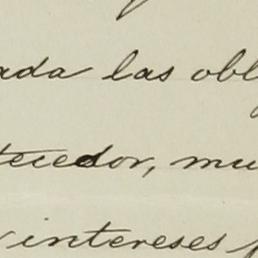 ada las obl
tecedor, mu
intereses